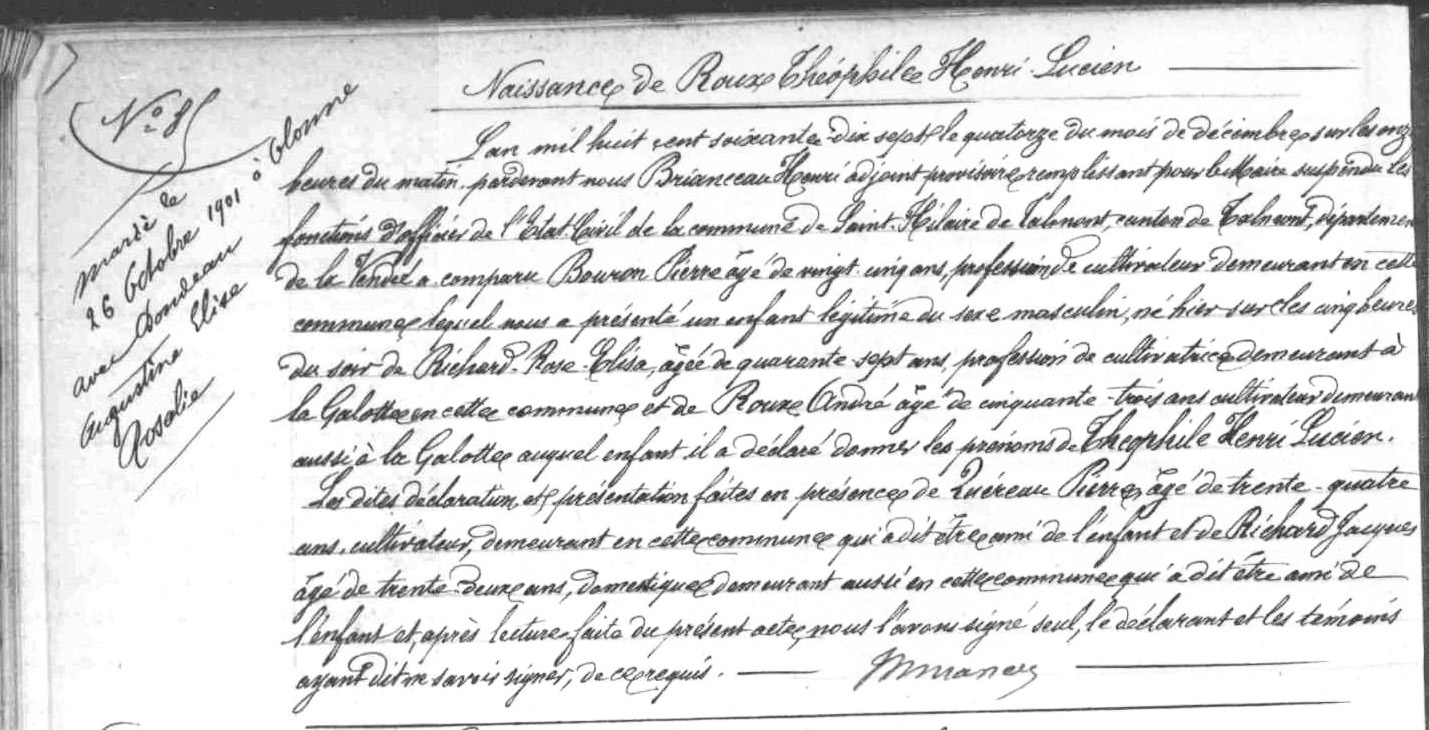 Naissance de Roux Théophile Henri Lucien
N° 85
Marié le
26 Octobre 1901 à Olonne
avec Dondeau
Augustine Elise
Rosalie
L'an mil huit cent soixante-dix sept le quatorze du mois de décembre sur les onze
heures du matin, pardevant nous Brianceau Henri adjoint provisoire remplissant pour le Maire suspendu les
fonctions d'officier de l'Etat Civil de la commune de Saint-Hilaire de Talmont, canton de Talmont, département
de la Vendée a comparu Bouron Pierre âgé de vingt-cinq ans, profession de cultivateur demeurant en cette
commune lequel nous a présenté un enfant légitime du sexe masculin, né hier sur les cinq heures
du soir de Richard Rose-Elisa, âgée de quarante-sept ans, profession de cultivatrice demeurant à
la Galotte en cette commune et de Roux André âgé de cinquante-trois ans cultivateur demeurant
aussi à la Galotte auquel enfant il a déclaré donner les prénoms de Théophile Henri Lucien.
Les dites déclaration et présentation faites en présence de Quéreau Pierre, âgé de trente-quatre
ans, cultivateur, demeurant en cette commune qui a dit être ami de l'enfant et de Richard Jacques
âgé de trente-deux ans, domestique demeurant aussi en cette commune qui a dit être ami de
l'enfant et, après lecture faite du présent acte, nous l'avons signé seul, le déclarant et les témoins
ayant dit ne savoir signer, de ce requis.